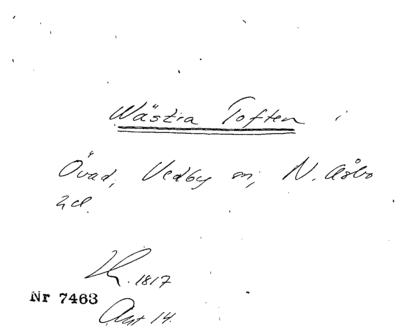 Wästra Toften i
Övad, Vedby sn, N. Åsbo
hd.
Lk. 1817
Nr 7463
Akt 14.